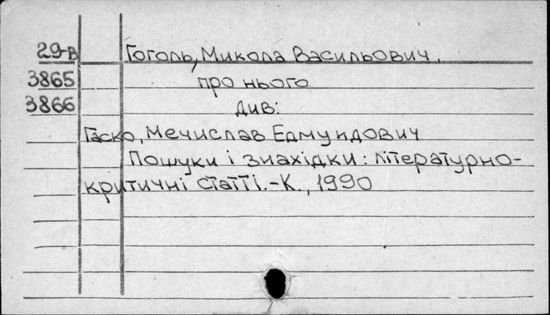 29-В Гоголь, Микола Васильович.
3865 про нього
3866 див:
Гаско, Мечислав Едмундович
Пошуки і знахідки: літературно-
критичні статті.-К., 1990